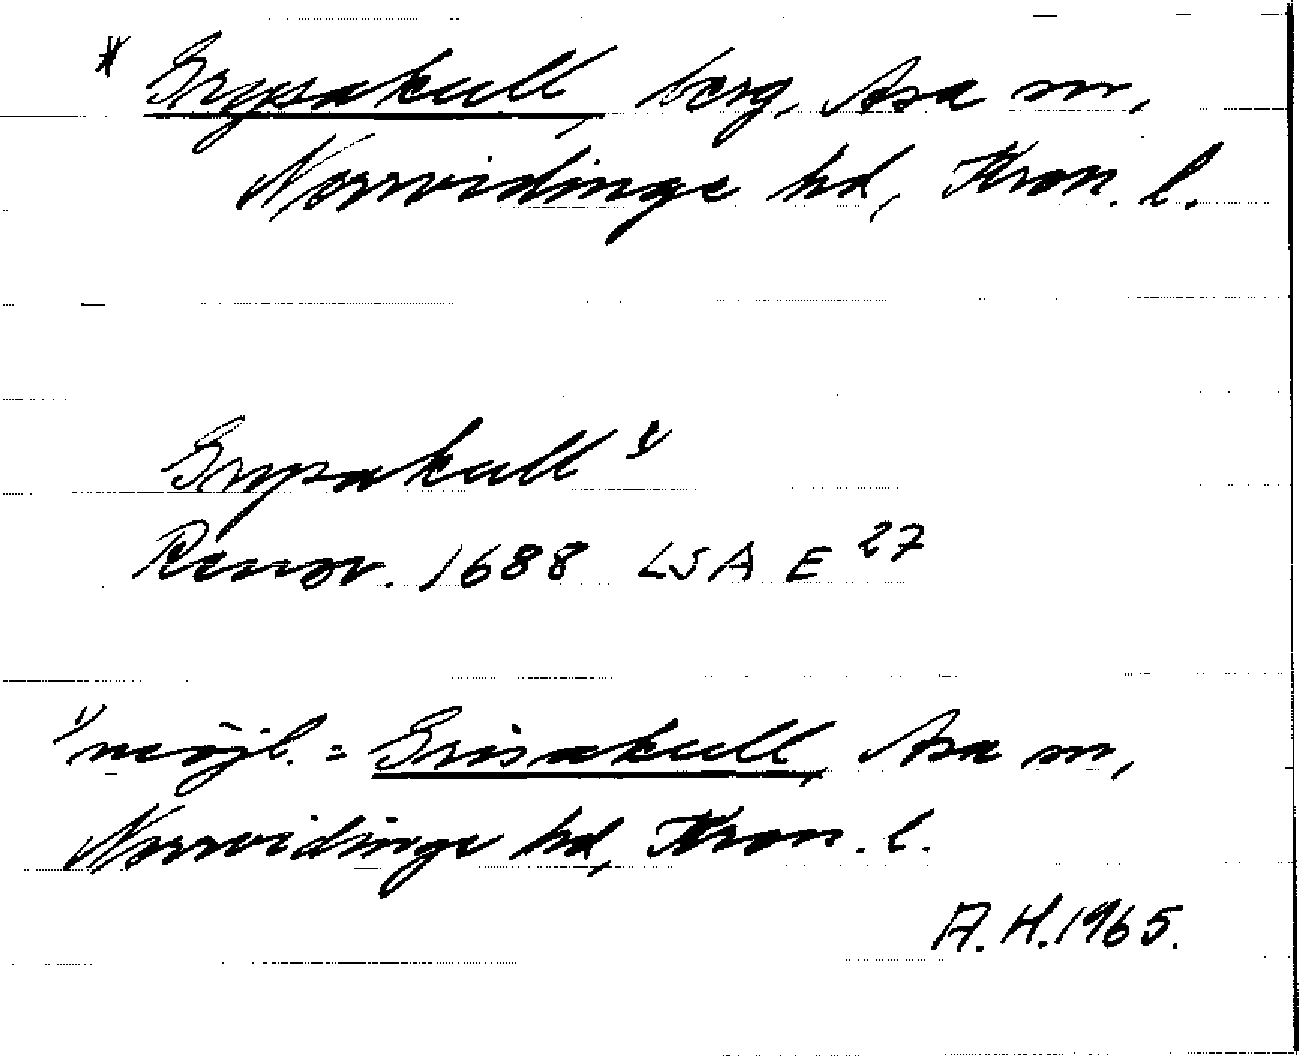 * Grysakull, berg, Asa sn,
Norrvidinge hd, Kron. l.
Grysakull ¹⁾
Renov. 1688 LSA E 27
¹⁾ möjl. = Grisakull, Asa sn,
Norrvidinge hd, Kron. l.
A. H. 1965.